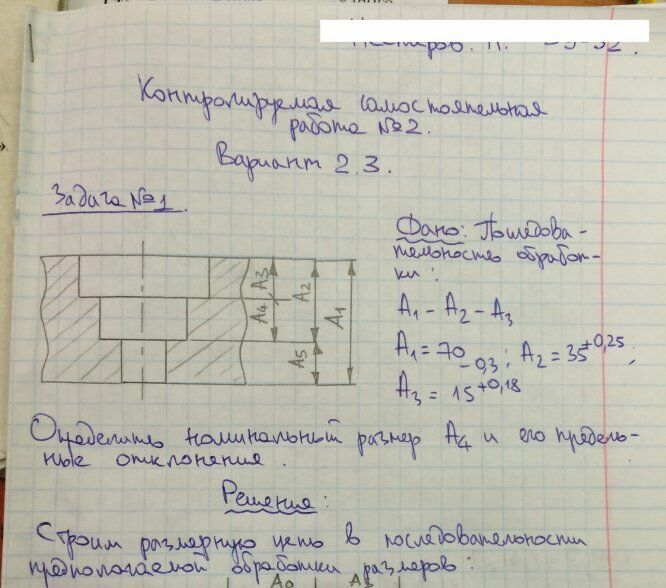 Контролируемая самостоятельная
работа №2.
Вариант 2.3.
Задача №1.
Дано: Последова-
тельность обработ-
ки:
A1 - A2 - A3
A1 = 70 -0,3; A2 = 35 +0,25;
A3 = 15 +0,18
A3
A4
A2
A1
A5
Определить номинальный размер A4 и его предель-
ные отклонения.
Решение:
Строим размерную цепь в последовательности
предпологаемой обработки размеров: